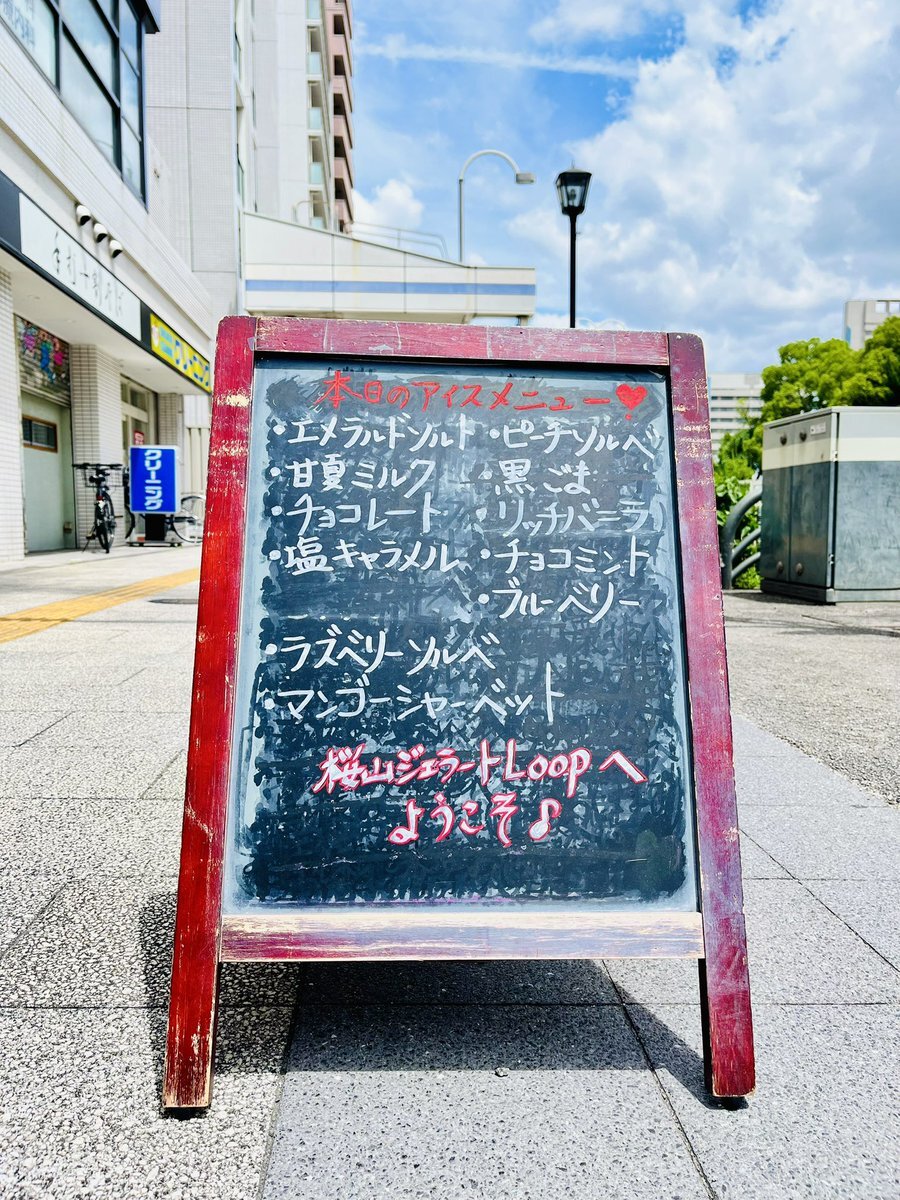 本日のアイスメニュー♥
・エメラルドソルト
・甘夏ミルク
・チョコレート
・塩キャラメル
・ピーチソルベ
・黒ごま
・リッチバニラ
・チョコミント
・ブルーベリー
・ラズベリーソルベ
・マンゴーシャーベット
桜山ジェラートLoopへ
ようこそ♪
クリーニング
手打十割そば